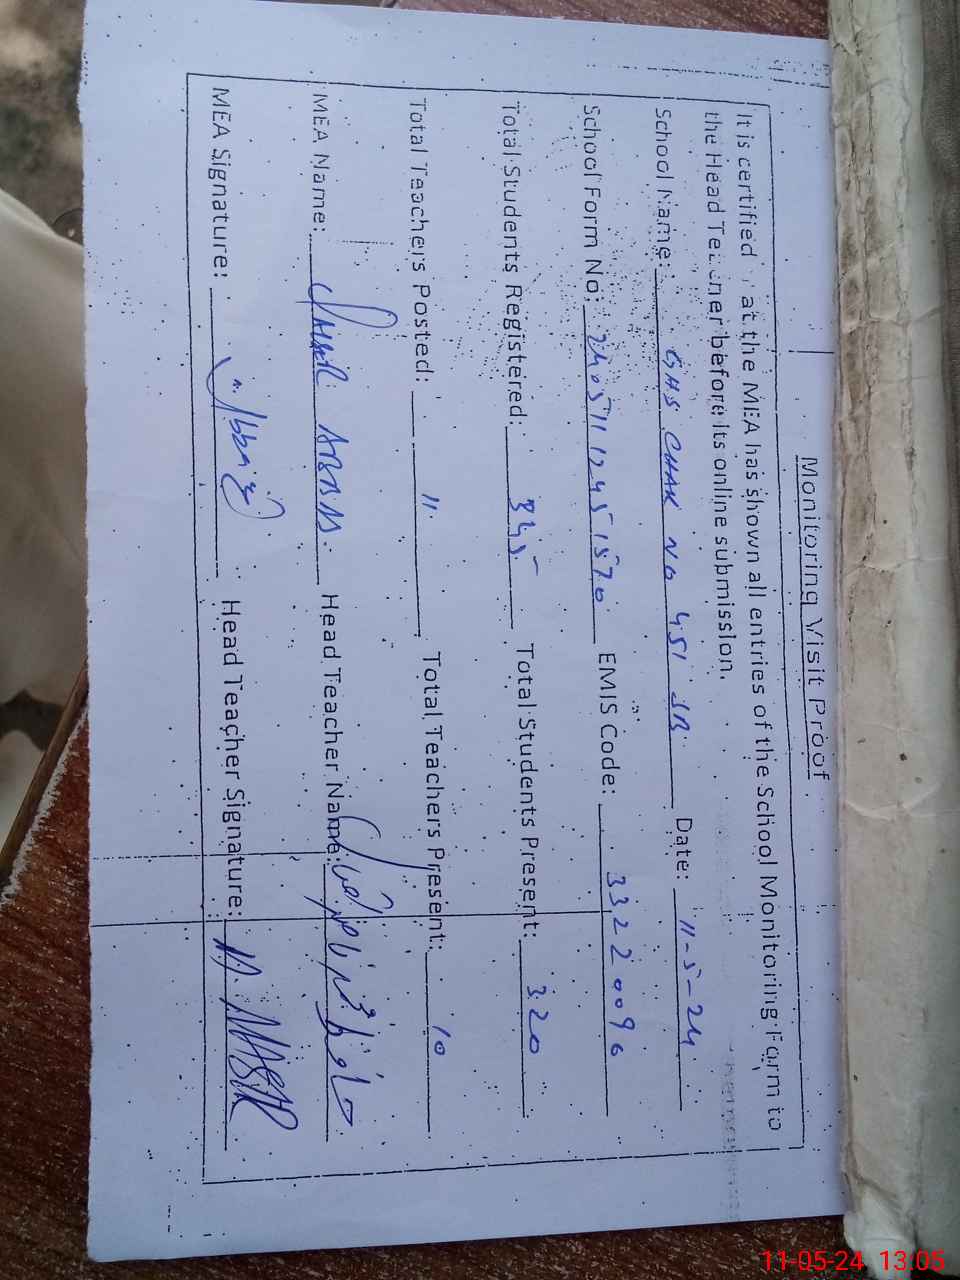 Monitoring Visit Proof
It is certified at the MEA has shown all entries of the School Monitoring Form to
the Head Teacher before its online submission.
School Name: GHS CHAK NO 451 JB Date: 11-5-24
School Form No: EMIS Code: 33220096
Total Students Registered: 345 Total Students Present: 320
Total Teachers Posted: 11 Total Teachers Present: 10
MEA Name: ABBAS Head Teacher Name:
MEA Signature: Head Teacher Signature:
11-05-24 13:05